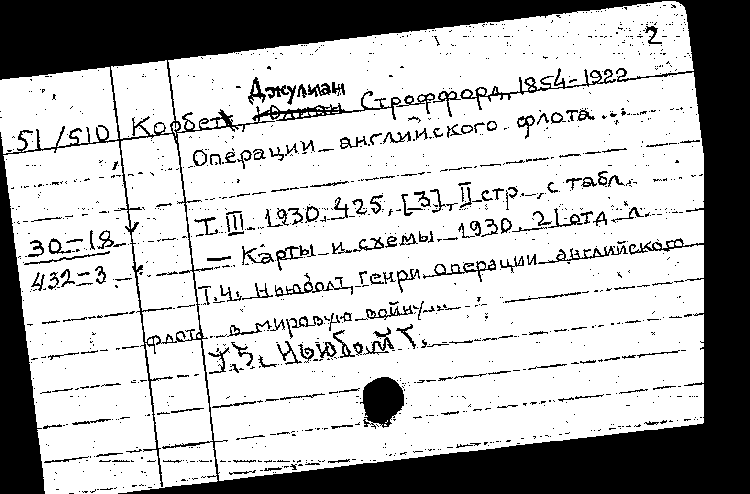 2
Джулиан
51/510 Корбет, Юлиан Строффорд, 1854-1922
Операции английского флота...
Т. III. 1930. 425, [3], II стр., с табл.
30-18 — Карты и схемы. 1930. 21 отд. л.
432-3 Т.4. Ньюболт, Генри. Операции английского
флота в мировую войну...
Т.5. Ньюболт Г.